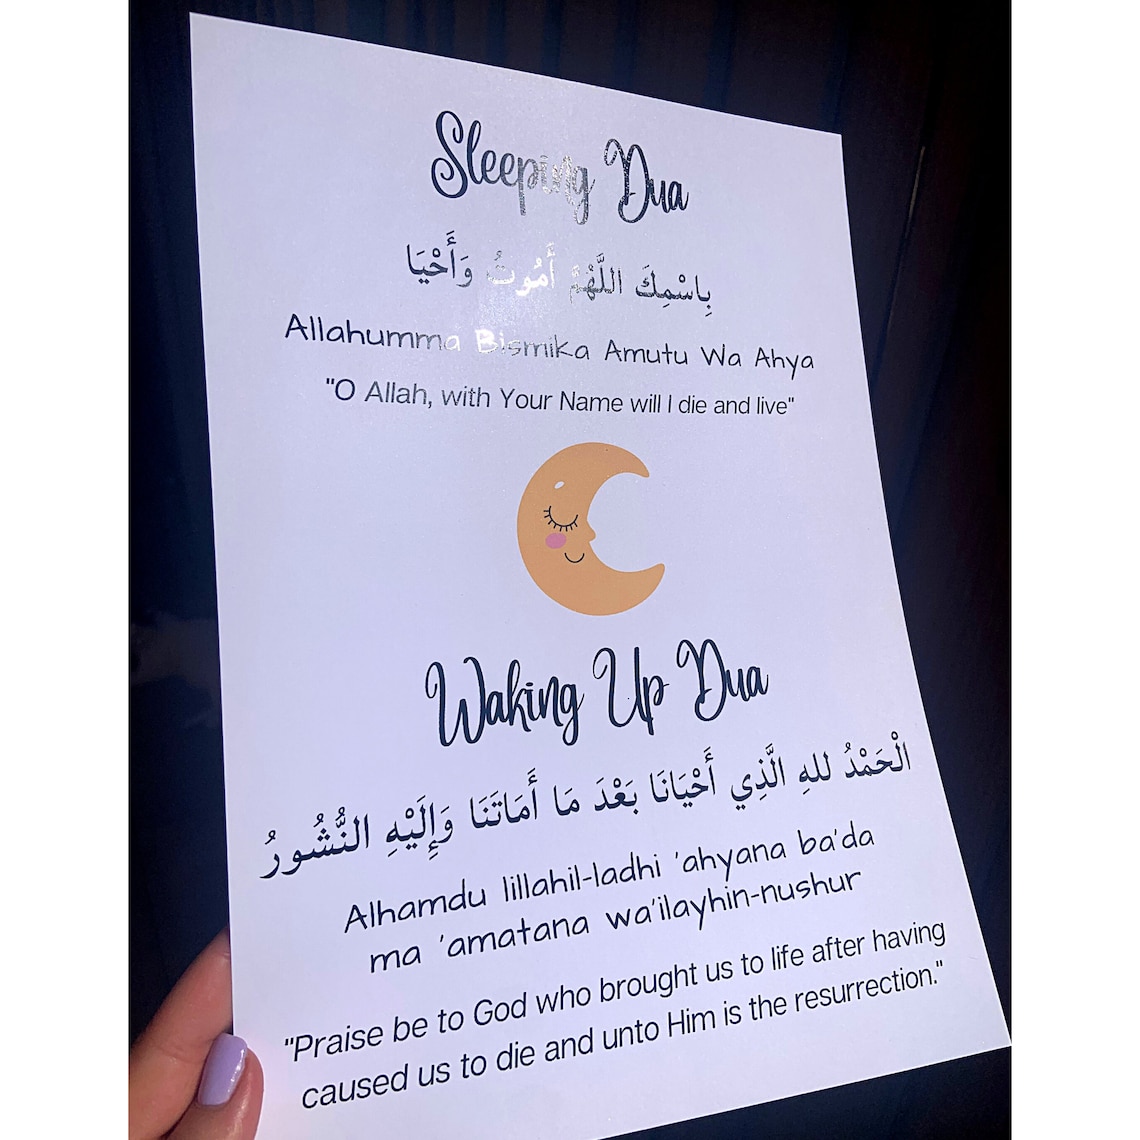 Sleeping Dua
بِاسْمِكَ اللَّهُمَّ أَمُوتُ وَأَحْيَا
Allahumma Bismika Amutu Wa Ahya
"O Allah, with Your Name will I die and live"
Waking Up Dua
الْحَمْدُ للهِ الَّذِي أَحْيَانَا بَعْدَ مَا أَمَاتَنَا وَإِلَيْهِ النُّشُورُ
Alhamdu lillahil-ladhi 'ahyana ba'da
ma 'amatana wa'ilayhin-nushur
"Praise be to God who brought us to life after having
caused us to die and unto Him is the resurrection."